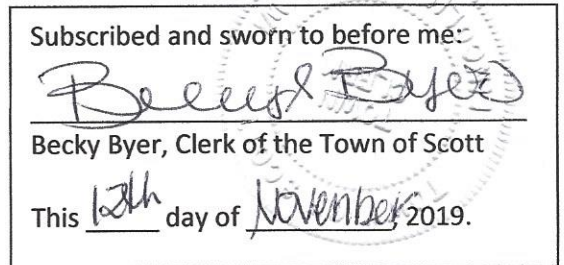 Subscribed and sworn to before me:
Becky Byer
Becky Byer, Clerk of the Town of Scott
This 12th day of November, 2019.